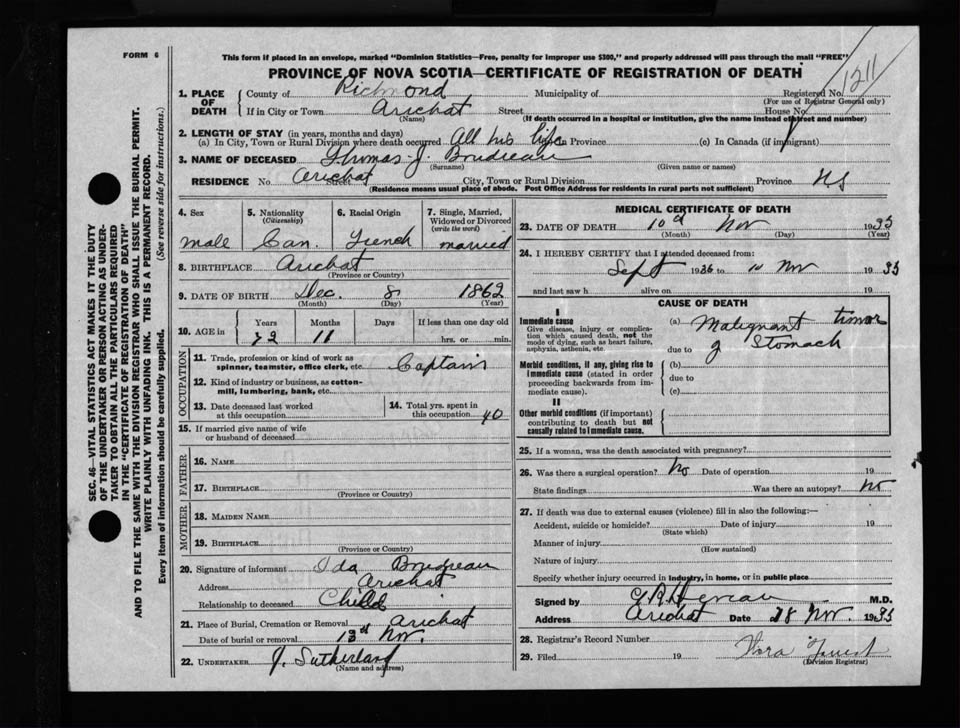 FORM 6
This form if placed in an envelope, marked "Dominion Statistics—Free, penalty for improper use $300," and properly addressed will pass through the mail "FREE"
PROVINCE OF NOVA SCOTIA—CERTIFICATE OF REGISTRATION OF DEATH
1211
1. PLACE OF DEATH
County of Richmond Municipality of Registered No.
(For use of Registrar General only)
If in City or Town Arichat Street House No.
(Name) (If death occurred in a hospital or institution, give the name instead of street and number)
2. LENGTH OF STAY (in years, months and days)
(a) In City, Town or Rural Division where death occurred All his life in Province (c) In Canada (if immigrant)
3. NAME OF DECEASED Thomas J. Boudreau
(Surname) (Given name or names)
RESIDENCE No. Arichat Street City, Town or Rural Division Province NS
(Residence means usual place of abode. Post Office Address for residents in rural parts not sufficient)
4. Sex
male
5. Nationality (Citizenship)
Can.
6. Racial Origin
French
7. Single, Married, Widowed or Divorced (write the word)
married
8. BIRTHPLACE Arichat
(Province or Country)
9. DATE OF BIRTH Dec. 8 1862
(Month) (Day) (Year)
10. AGE in
Years Months Days If less than one day old
72 11 hrs. or min.
OCCUPATION
11. Trade, profession or kind of work as spinner, teamster, office clerk, etc. Captain
12. Kind of industry or business, as cotton-mill, lumbering, bank, etc.
13. Date deceased last worked at this occupation
14. Total yrs. spent in this occupation 40
15. If married give name of wife or husband of deceased
FATHER
16. NAME
17. BIRTHPLACE
(Province or Country)
MOTHER
18. MAIDEN NAME
19. BIRTHPLACE
(Province or Country)
20. Signature of informant Ida Boudreau
Address Arichat
Relationship to deceased Child
21. Place of Burial, Cremation or Removal Arichat
Date of burial or removal 13th Nov.
22. UNDERTAKER J. Sutherland
(Name and address)
MEDICAL CERTIFICATE OF DEATH
23. DATE OF DEATH 10th Nov 1935
(Month) (Day) (Year)
24. I HEREBY CERTIFY that I attended deceased from:
Sept 1936 to 10 Nov 1935
and last saw h alive on 19
CAUSE OF DEATH
I
Immediate cause
Give disease, injury or complication which caused death, not the mode of dying, such as heart failure, asphyxia, asthenia, etc.
(a) Malignant tumor
due to of Stomach
Morbid conditions, if any, giving rise to immediate cause (stated in order proceeding backwards from immediate cause).
(b)
due to
(c)
II
Other morbid conditions (if important) contributing to death but not causally related to immediate cause.
25. If a woman, was the death associated with pregnancy?
26. Was there a surgical operation? No Date of operation 19
State findings Was there an autopsy? No
27. If death was due to external causes (violence) fill in also the following:—
Accident, suicide or homicide? Date of injury 19
(State which)
Manner of injury
(How sustained)
Nature of injury
Specify whether injury occurred in industry, in home, or in public place
Signed by M.D.
Address Arichat Date 28 Nov. 1935
28. Registrar's Record Number
29. Filed 19
(Division Registrar)
SEC. 46—VITAL STATISTICS ACT MAKES IT THE DUTY
OF THE UNDERTAKER OR PERSON ACTING AS UNDER-
TAKER TO OBTAIN ALL THE PARTICULARS REQUIRED
IN THE "CERTIFICATE OF REGISTRATION OF DEATH"
AND TO FILE THE SAME WITH THE DIVISION REGISTRAR WHO SHALL ISSUE THE BURIAL PERMIT.
WRITE PLAINLY WITH UNFADING INK. THIS IS A PERMANENT RECORD.
Every item of information should be carefully supplied. (See reverse side for instructions.)